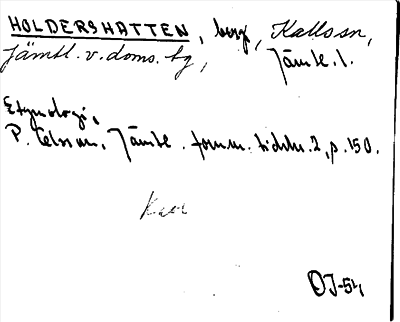 HOLDERSHATTEN, berg, Kalls sn,
Jämtl. v. doms. tg, Jämtl. l.
Etymologi,
P. Olsson, Jämtl. fornm. tidskr. 2, p. 150.
OJ-54